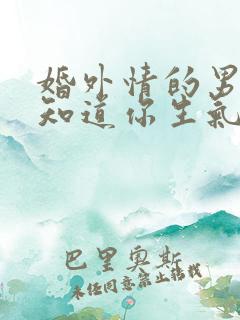 婚外情的男
知道你生氣
巴里奧斯
未经同意禁止转载